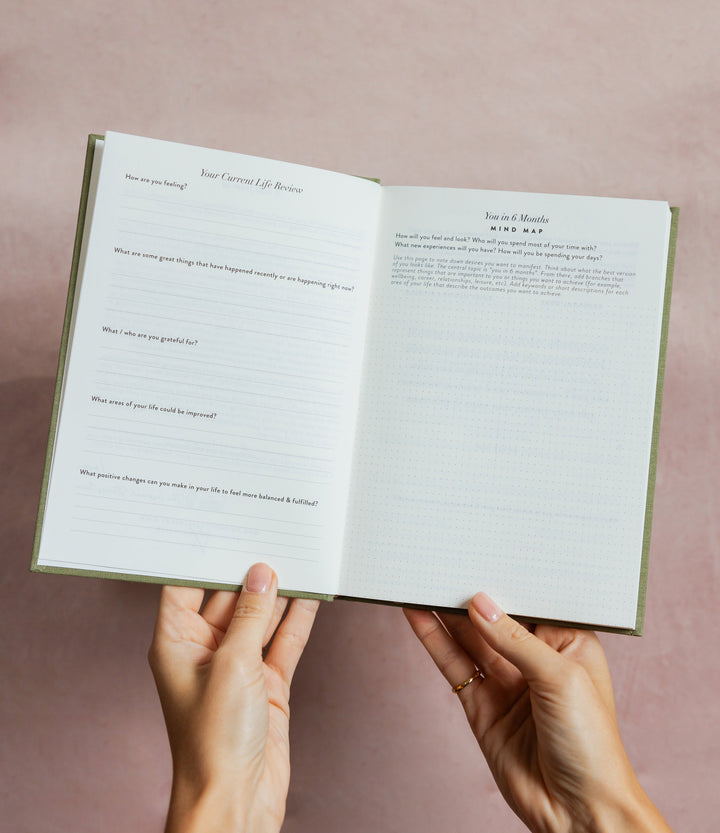 Your Current Life Review
How are you feeling?
What are some great things that have happened recently or are happening right now?
What / who are you grateful for?
What areas of your life could be improved?
What positive changes can you make in your life to feel more balanced & fulfilled?
You in 6 Months
MIND MAP
How will you feel and look? Who will you spend most of your time with?
What new experiences will you have? How will you be spending your days?
Use this page to note down desires you want to manifest. Think about what the best version
of you looks like. The central topic is "you in 6 months". From there, add branches that
represent things that are important to you or things you want to achieve (for example,
wellbeing, career, relationships, leisure, etc). Add keywords or short descriptions for each
area of your life that describe the outcomes you want to achieve.